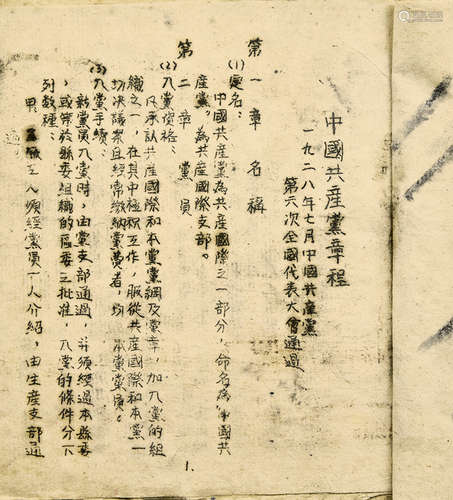 中國共産黨章程
一九二八年七月中國共産黨
第六次全國代表大會通過
第一章 名稱
(1) 定名：
中國共産黨為共産國際之一部分，命名為中國共
産黨，為共産國際支部。
第二章 黨員
(2) 入黨資格：
凡承认共産國際和本黨黨綱及黨章，加入黨的組
織之一，在其中積極工作，服從共産國際和本黨一
切决議案且經常缴纳黨費者，均 本黨黨員。
(3) 入黨手續：
新黨員入黨时，由黨支部通過，并須經過本縣委
或等於縣委組織的區委之批准，入黨的條件分下
列数種：
甲 工人須經黨員一人介绍，由生産支部通
過。
1.